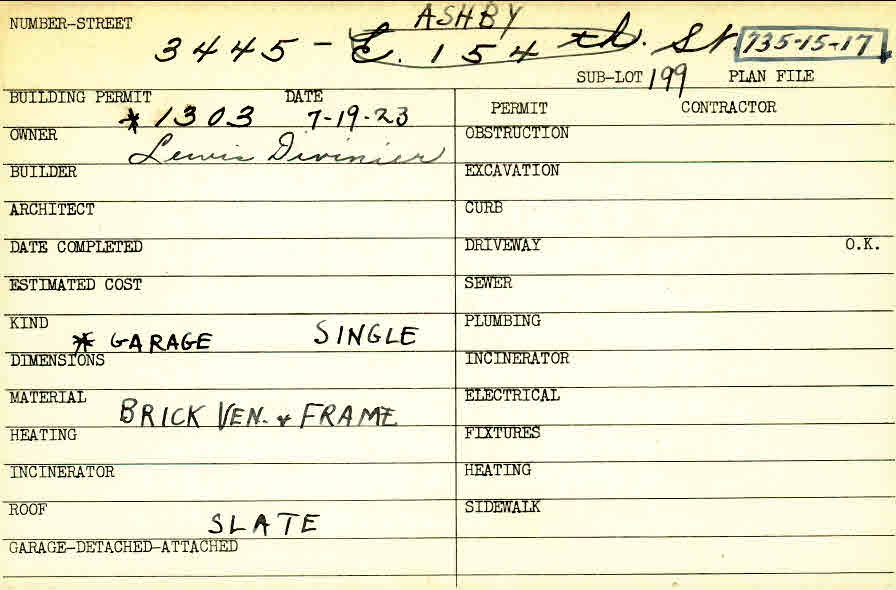 ASHBY
NUMBER-STREET 3445 - E. 154 th. St. 735-15-17
SUB-LOT 199 PLAN FILE
BUILDING PERMIT DATE
* 1303 7-19-23
PERMIT CONTRACTOR
OWNER Lewis Divinier
OBSTRUCTION
BUILDER
EXCAVATION
ARCHITECT
CURB
DATE COMPLETED
DRIVEWAY O.K.
ESTIMATED COST
SEWER
KIND
* GARAGE SINGLE
PLUMBING
DIMENSIONS
INCINERATOR
MATERIAL
BRICK VEN. & FRAME
ELECTRICAL
HEATING
FIXTURES
INCINERATOR
HEATING
ROOF
SLATE
SIDEWALK
GARAGE-DETACHED-ATTACHED